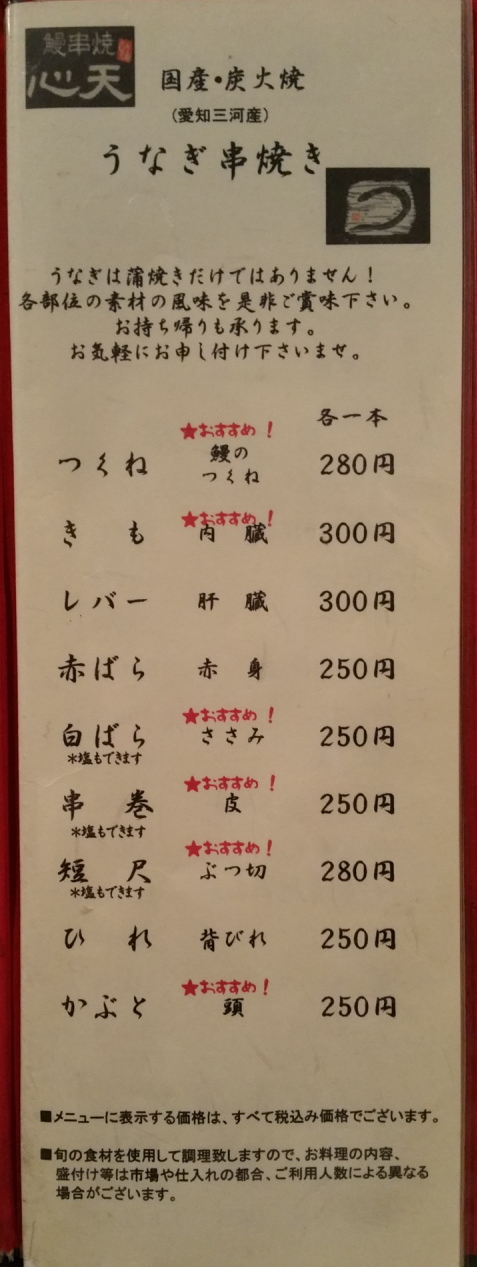 鰻串焼
心天
国産・炭火焼
(愛知三河産)
うなぎ串焼き
うなぎは蒲焼きだけではありません！
各部位の素材の風味を是非ご賞味下さい。
お持ち帰りも承ります。
お気軽にお申し付け下さいませ。
各一本
★おすすめ！
つくね 鰻のつくね 280円
★おすすめ！
きも 内臓 300円
レバー 肝臓 300円
赤ばら 赤身 250円
★おすすめ！
白ばら ささみ 250円
*塩もできます
★おすすめ！
串巻 皮 250円
*塩もできます
★おすすめ！
短尺 ぶつ切 280円
*塩もできます
ひれ 背びれ 250円
★おすすめ！
かぶと 頭 250円
■メニューに表示する価格は、すべて税込み価格でございます。
■旬の食材を使用して調理致しますので、お料理の内容、
盛付け等は市場や仕入れの都合、ご利用人数による異なる
場合がございます。